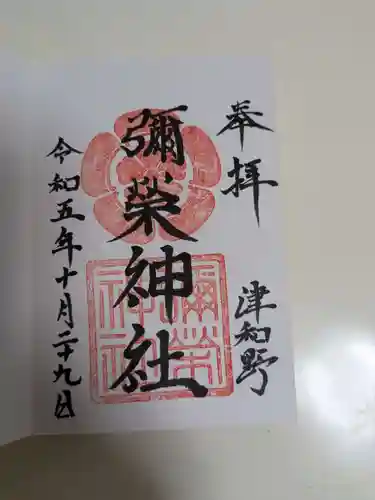 奉拝
津和野
彌榮神社
彌榮
神社
令和五年十月二十九日